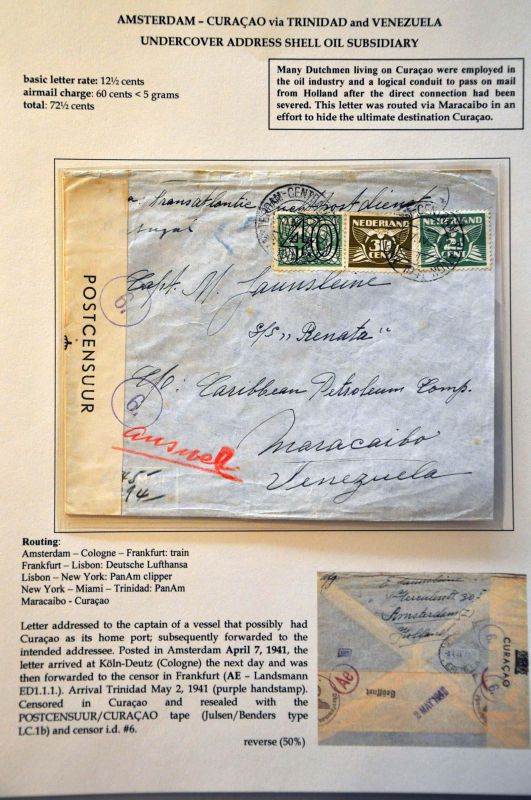 AMSTERDAM – CURAÇAO via TRINIDAD and VENEZUELA
UNDERCOVER ADDRESS SHELL OIL SUBSIDIARY
basic letter rate: 12½ cents
airmail charge: 60 cents < 5 grams
total: 72½ cents
Many Dutchmen living on Curaçao were employed in
the oil industry and a logical conduit to pass on mail
from Holland after the direct connection had been
severed. This letter was routed via Maracaibo in an
effort to hide the ultimate destination Curaçao.
Transatlantic
NEDERLAND
30
CENT
NEDERLAND
2½
CENT
40
POSTCENSUUR
6.
6.
Capt. M. Jaunsleine
s/s „Renata"
c/o: Caribbean Petroleum Comp.
Maracaibo
Venezuela
Routing:
Amsterdam – Cologne – Frankfurt: train
Frankfurt – Lisbon: Deutsche Lufthansa
Lisbon – New York: PanAm clipper
New York – Miami – Trinidad: PanAm
Maracaibo - Curaçao
Letter addressed to the captain of a vessel that possibly had
Curaçao as its home port; subsequently forwarded to the
intended addressee. Posted in Amsterdam April 7, 1941, the
letter arrived at Köln-Deutz (Cologne) the next day and was
then forwarded to the censor in Frankfurt (AE – Landsmann
ED1.1.1.). Arrival Trinidad May 2, 1941 (purple handstamp).
Censored in Curaçao and resealed with the
POSTCENSUUR/CURAÇAO tape (Julsen/Benders type
LC.1b) and censor i.d. #6.
Amsterdam (Z)
Holland
CURAÇAO
Ae
Geöffnet
2 MAY 1941
reverse (50%)